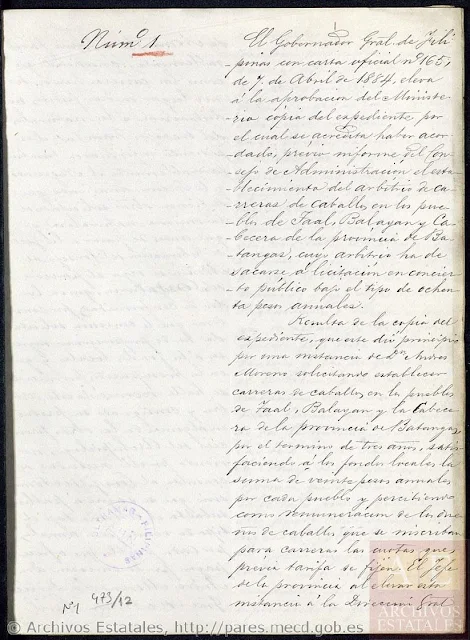 Núm.º 1
El Gobernador Gral. de Fili
pinas con carta oficial nº 165,
de 7 de Abril de 1884, eleva
á la aprobacion del Ministe-
-rio copia del expediente, por
el cual se acredita haber acor-
-dado, previo informe del Con-
-sejo de Administración el esta-
-blecimiento del arbitrio de ca-
-rreras de caballos en los pue-
-blos de Taal, Balayan y Ca-
-becera de la provincia de Ba-
-tangas, cuyo arbitrio ha de
sacarse á licitación en concier-
-to público bajo el tipo de ochen-
-ta pesos annales.
Resulta de la copia del
expediente, que este dió principio
por una instancia de Dn. Andres
Moreno solicitando establecer
carreras de caballos en los pueblos
de Taal, Balayan y la Cabece-
-ra de la provincia de Batangas
por el término de tres años, satis-
-faciendo á los fondos locales la
suma de veinte pesos annales
por cada pueblo y percibiendo
como remuneracion de los due-
-ños de caballos que se inscriban
para carreras las cuotas que
previa tarifa se fijen. El Jefe
de la provincia al elevar esta
instancia á la Direccion Gral
Nº 1 473/12
ARCHIVOS
ESTATALES
© Archivos Estatales, http://pares.mecd.gob.es